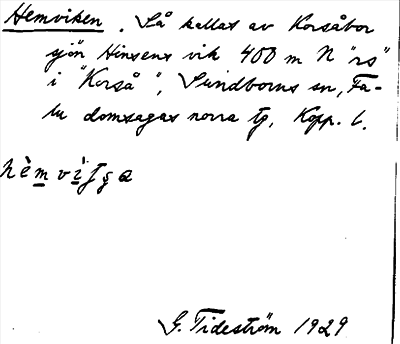 Hemviken. Så kallas av Korsåbor
sjön Hinsens vik 400 m N "rs"
i "Korså", Sundborns sn, Fa-
lu domsagas norra tg, Kopp. l.
G. Tideström 1929